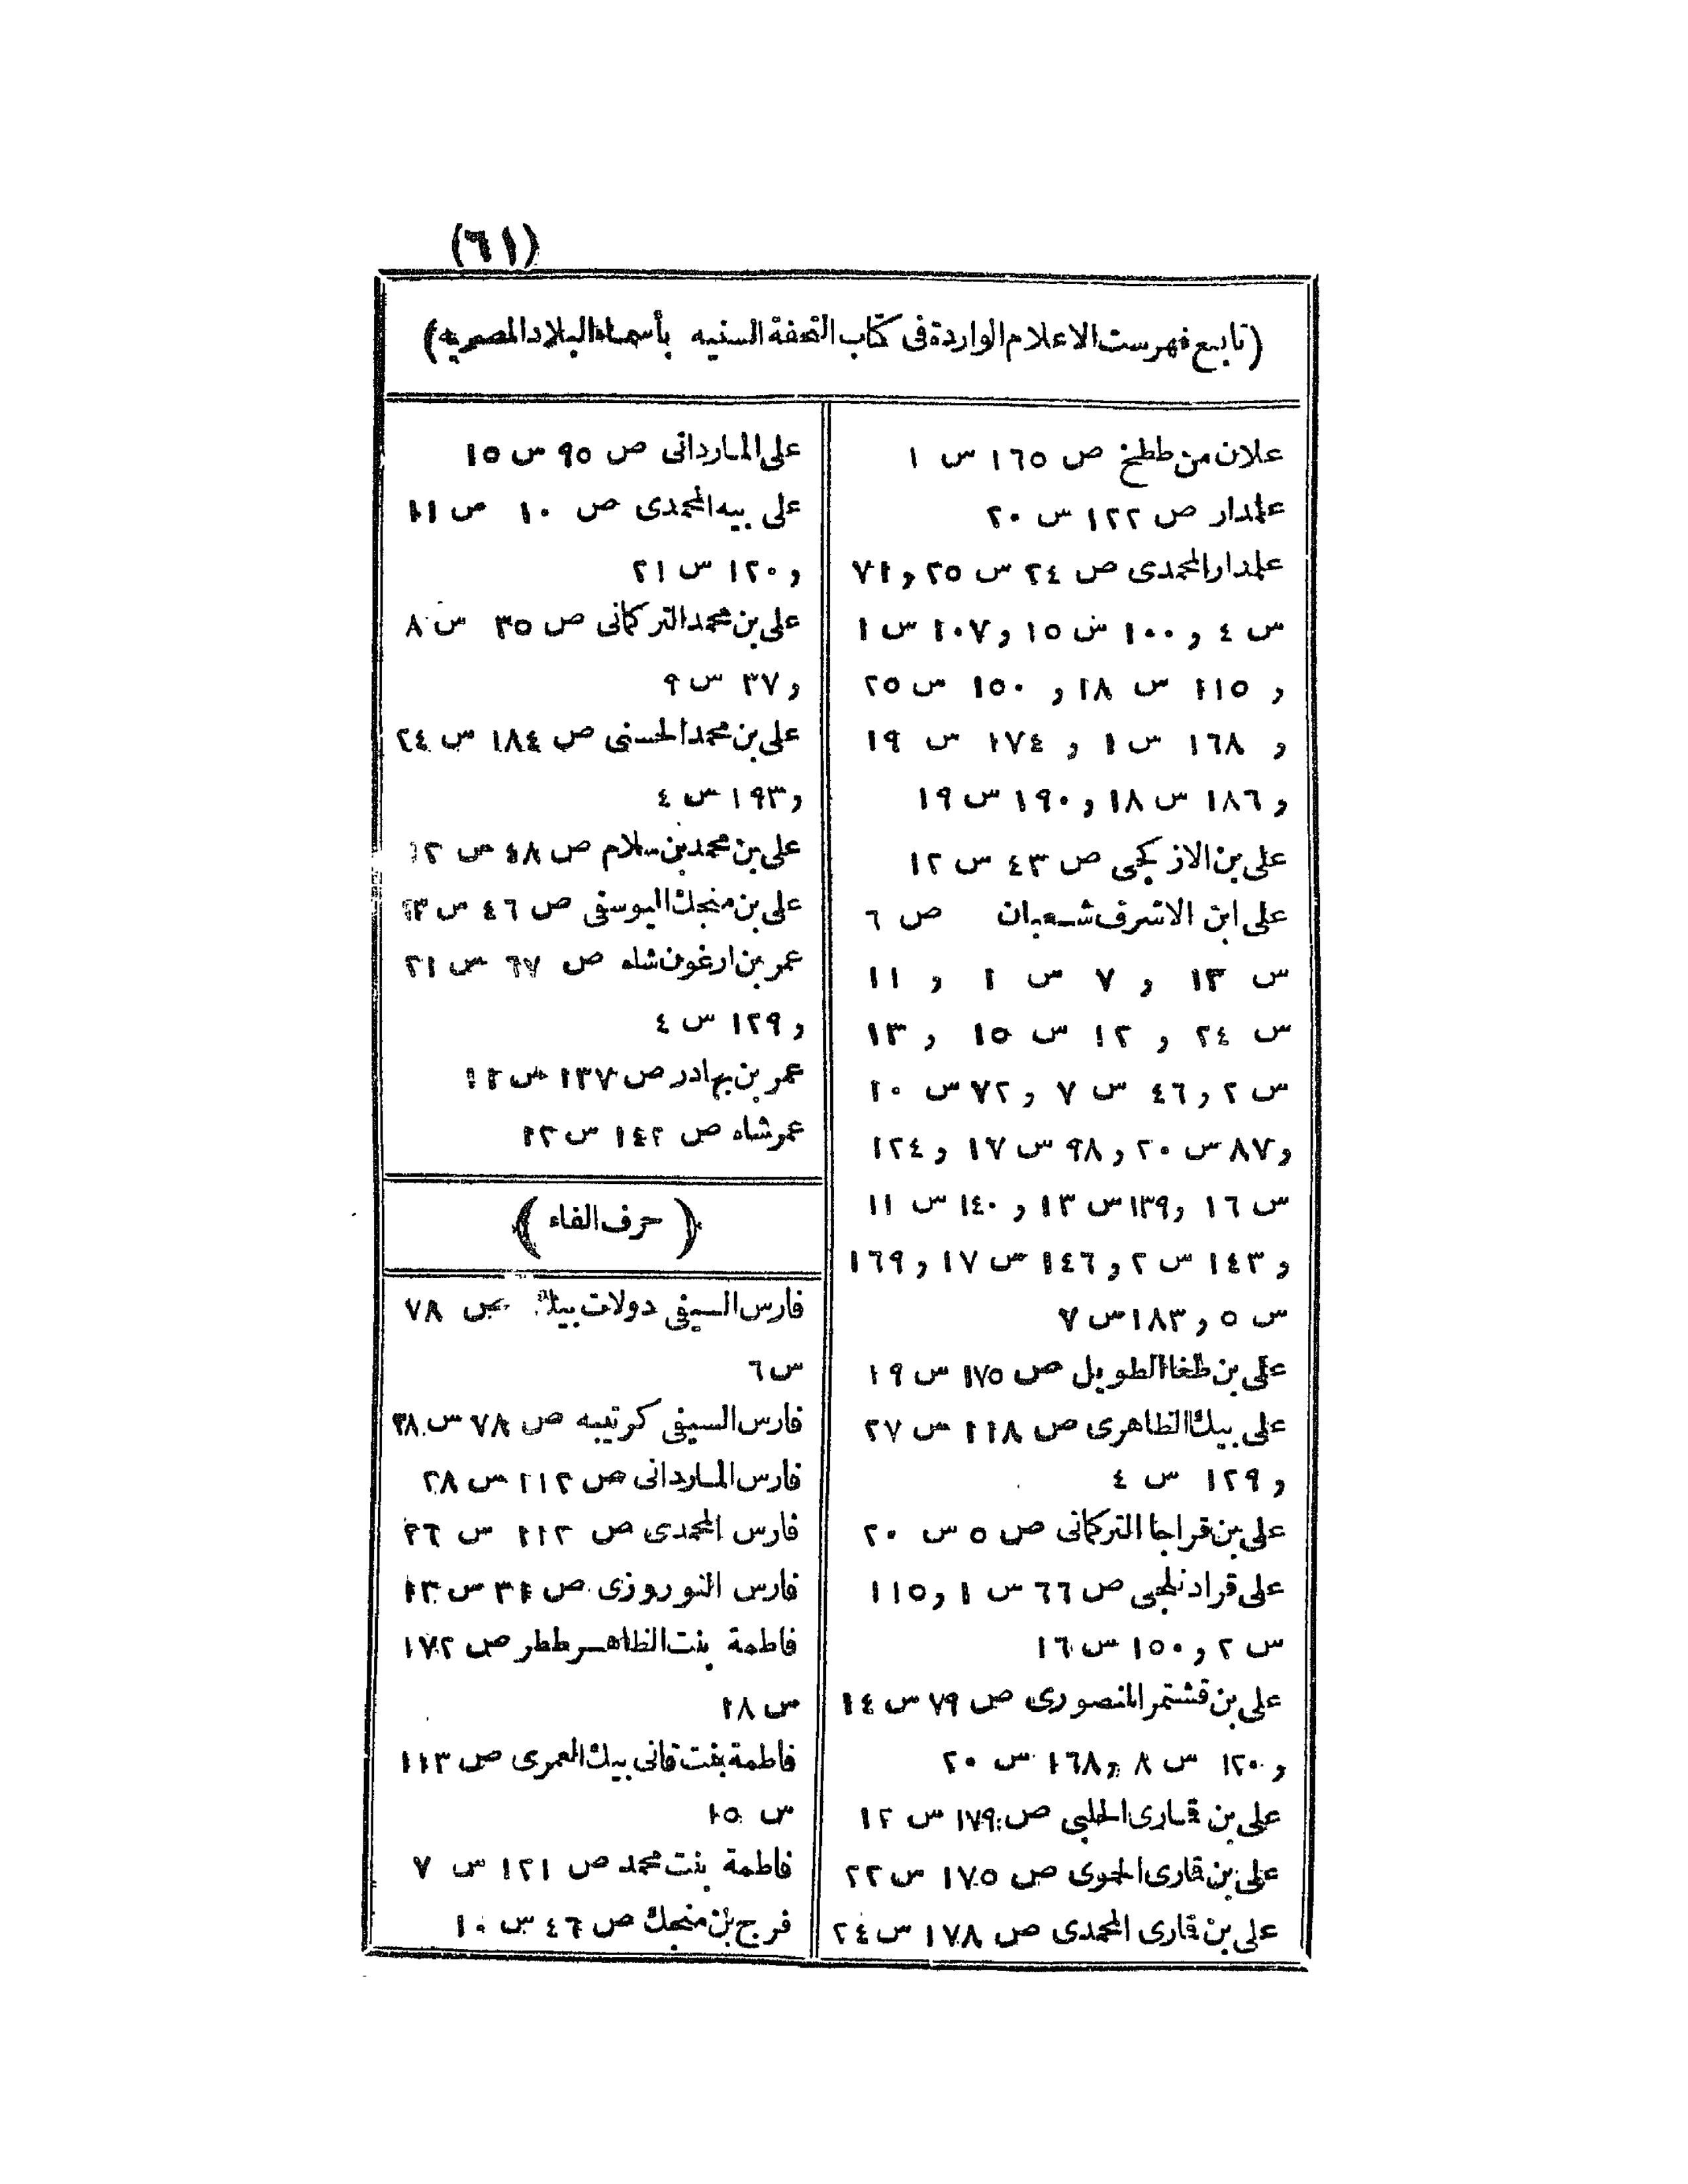 (٦١)
(تابع فهرست الاعلام الواردة فى كتاب التحفة السنيه بأسماء البلاد المصريه)
علان من ططخ ص ١٦٥ س ١
علمدار ص ١٢٢ س ٢٠
علمدار المحمدى ص ٢٤ س ٢٥ و ٧١
س ٤ و ١٠٠ س ١٥ و ١٠٧ س ١
و ١١٥ س ١٨ و ١٥٠ س ٢٥
و ١٦٨ س ١ و ١٧٤ س ١٩
و ١٨٦ س ١٨ و ١٩٠ س ١٩
على بن الازكجى ص ٤٣ س ١٢
على ابن الاشرف شعبان ص ٦
س ١٣ و ٧ س ١ و ١١
س ٢٤ و ١٢ س ١٥ و ١٣
س ٢ و ٤٦ س ٧ و ٧٢ س ١٠
و ٨٧ س ٢٠ و ٩٨ س ١٧ و ١٢٤
س ١٦ و ١٣٩ س ١٣ و ١٤٠ س ١١
و ١٤٣ س ٢ و ١٤٦ س ١٧ و ١٦٩
س ٥ و ١٨٣ س ٧
على بن طغا الطويل ص ١٧٥ س ١٩
على بيك الظاهرى ص ١١٨ س ٢٧
و ١٢٩ س ٤
على بن قراجا التركمانى ص ٥ س ٢٠
على قراد نلجى ص ٦٦ س ١ و ١١٥
س ٢ و ١٥٠ س ١٦
على بن قشتمر المنصورى ص ٧٩ س ١٤
و ١٢٠ س ٨ و ١٦٨ س ٢٠
على بن قارى الحلبى ص ١٧٩ س ١٢
على بن قارى الحموى ص ١٧٥ س ٢٢
على بن قارى المحمدى ص ١٧٨ س ٢٤
على الماردانى ص ٩٥ س ١٥
على بيه المحمدى ص ١٠ س ١١
و ١٢٠ س ٢١
على بن محمد التركمانى ص ٣٥ س ٨
و ٣٧ س ٩
على بن محمد الحسنى ص ١٨٤ س ٢٤
و ١٩٣ س ٤
على بن محمد بن سلام ص ٤٨ س ١٢
على بن منجك اليوسفى ص ٤٦ س
عمر بن ارغون شاه ص ٦٧ س ٢١
و ١٢٩ س ٤
عمر بن بهادر ص ١٣٧ س
عمر شاه ص ١٤٢ س ١٢
(حرف الفاء)
فارس السيفى دولات بيك ص ٧٨
س ٦
فارس السيفى كرتيبه ص ٧٨ س
فارس الماردانى ص ١١٢ س ٢٨
فارس المحمدى ص ١١٢ س ٢٦
فارس النوروزى ص ٣١ س ١٣
فاطمة بنت الظاهر ططر ص ١٧٢
س ١٨
فاطمة بنت قانى بيك العمرى ص ١١٣
س ١٥
فاطمة بنت محمد ص ١٢١ س ٧
فرج بن منجك ص ٤٦ س ١٠